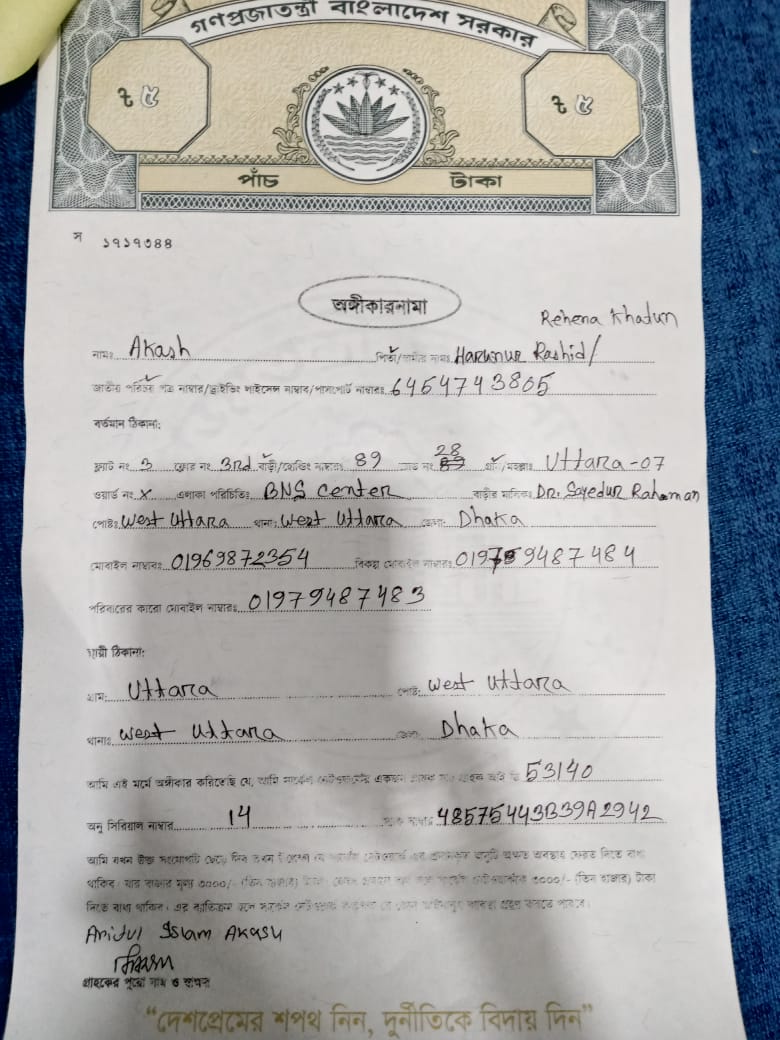 গণপ্রজাতন্ত্রী বাংলাদেশ সরকার
৳ ৫ ৳ ৫
পাঁচ টাকা
স ১৯১৭৩৪৪
অঙ্গীকারনামা
Rehena Khadun
নামঃ Akash পিতা/স্বামীর নামঃ Harunur Rashid/
জাতীয় পরিচয় পত্র নাম্বার/ড্রাইভিং লাইসেন্স নাম্বার/পাসপোর্ট নাম্বারঃ 6454743805
বর্তমান ঠিকানা:
ফ্লাট নং 3 ফ্লোর নং 3rd বাড়ী/হোল্ডিং নাম্বারঃ 89 রোড নং 28 গ্রাম/মহল্লাঃ Uttara-07
ওয়ার্ড নং x এলাকা পরিচিতিঃ BNS Center বাড়ীর মালিকঃ Dr. Sayedur Rahaman
পোষ্টঃ West Uttara থানাঃ West Uttara জেলাঃ Dhaka
মোবাইল নাম্বারঃ 01969872354 বিকল্প মোবাইল নাম্বারঃ 01979487484
পরিবারের কারো মোবাইল নাম্বারঃ 01979487483
স্থায়ী ঠিকানা:
গ্রাম: Uttara পোষ্ট: West Uttara
থানাঃ West Uttara জেলা: Dhaka
আমি এই মর্মে অঙ্গীকার করিতেছি যে, আমি সার্কেল নেটওয়ার্কের একজন গ্রাহক আমার গ্রাহক আই ডি 53140
অনু সিরিয়াল নাম্বার 14 ম্যাক নাম্বার 48575443B39A2942
আমি যখন উক্ত সংযোগটি ছেড়ে দিব তখন সার্কেল নেটওয়ার্ক এর প্রদানকৃত অনুটি অক্ষত অবস্থায় ফেরত দিতে বাধ্য
থাকিব। যার বাজার মূল্য ৩০০০/- (তিন হাজার) টাকা। সার্কেল নেটওয়ার্ককে ৩০০০/- (তিন হাজার) টাকা
দিতে বাধ্য থাকিব। এর ব্যতিক্রম হলে সার্কেল নেটওয়ার্ক কর্তৃপক্ষ যে কোন আইনানুগ ব্যবস্থা গ্রহণ করতে পারবে।
Aridul Islam Akash
গ্রাহকের পুরো নাম ও স্বাক্ষর
“দেশপ্রেমের শপথ নিন, দুর্নীতিকে বিদায় দিন”